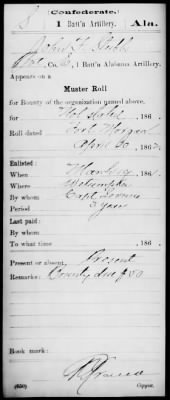 (Confederate.)
S 1 Batt'n Artillery. Ala.
John F.
Pvt, Co. , 1 Batt'n Alabama Artillery.
Appears on a
Muster Roll
for Bounty of the organization named above,
for Not stated , 186 .
Roll dated Fort Morgan
April 30 , 186 .
Enlisted:
When , 186 .
Where Wetumpka
By whom Capt
Period 3 years
Last paid:
By whom
To what time , 186 .
Present or absent, Present
Remarks: Bounty due $50
Book mark:
(650) Copyist.